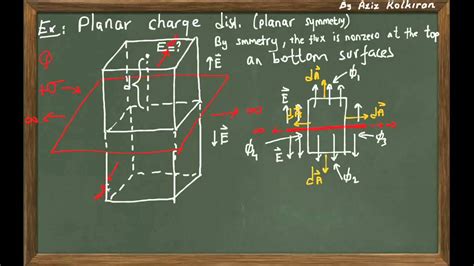 By Aziz Kolkiran
Ex: Planar charge dist. (planar symmetry)
By smmetry, the flux is nonzero at the top
an bottom surfaces
E=?
d
+σ
∞
∞
E
E
dA
Φ₁
E
dA
dA
E
Φ₁
Φ₃
dA
Φ₂